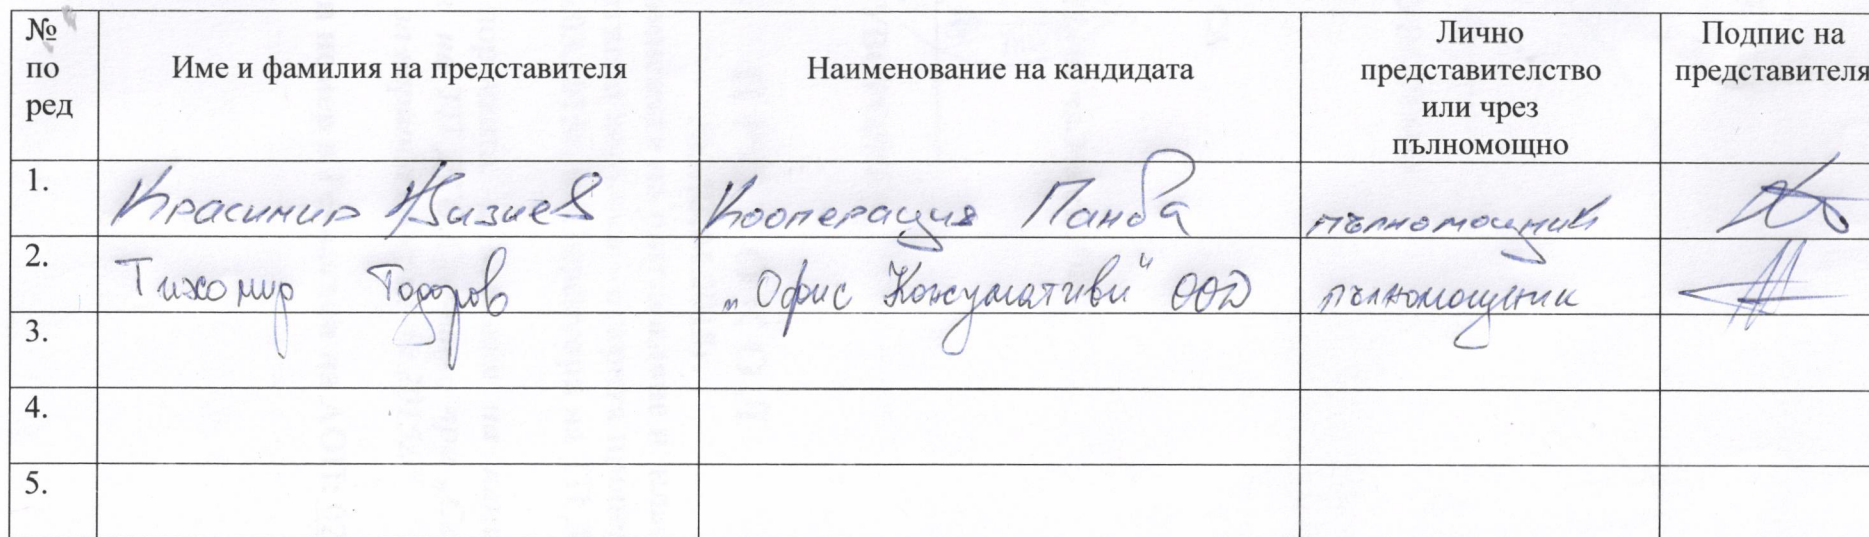 № по ред
Име и фамилия на представителя
Наименование на кандидата
Лично представителство или чрез пълномощно
Подпис на представителя
1. Красимир Кооперация Панда пълномощник
2. Тихомир Тодоров „Офис Консумативи“ ООД пълномощник
3.
4.
5.